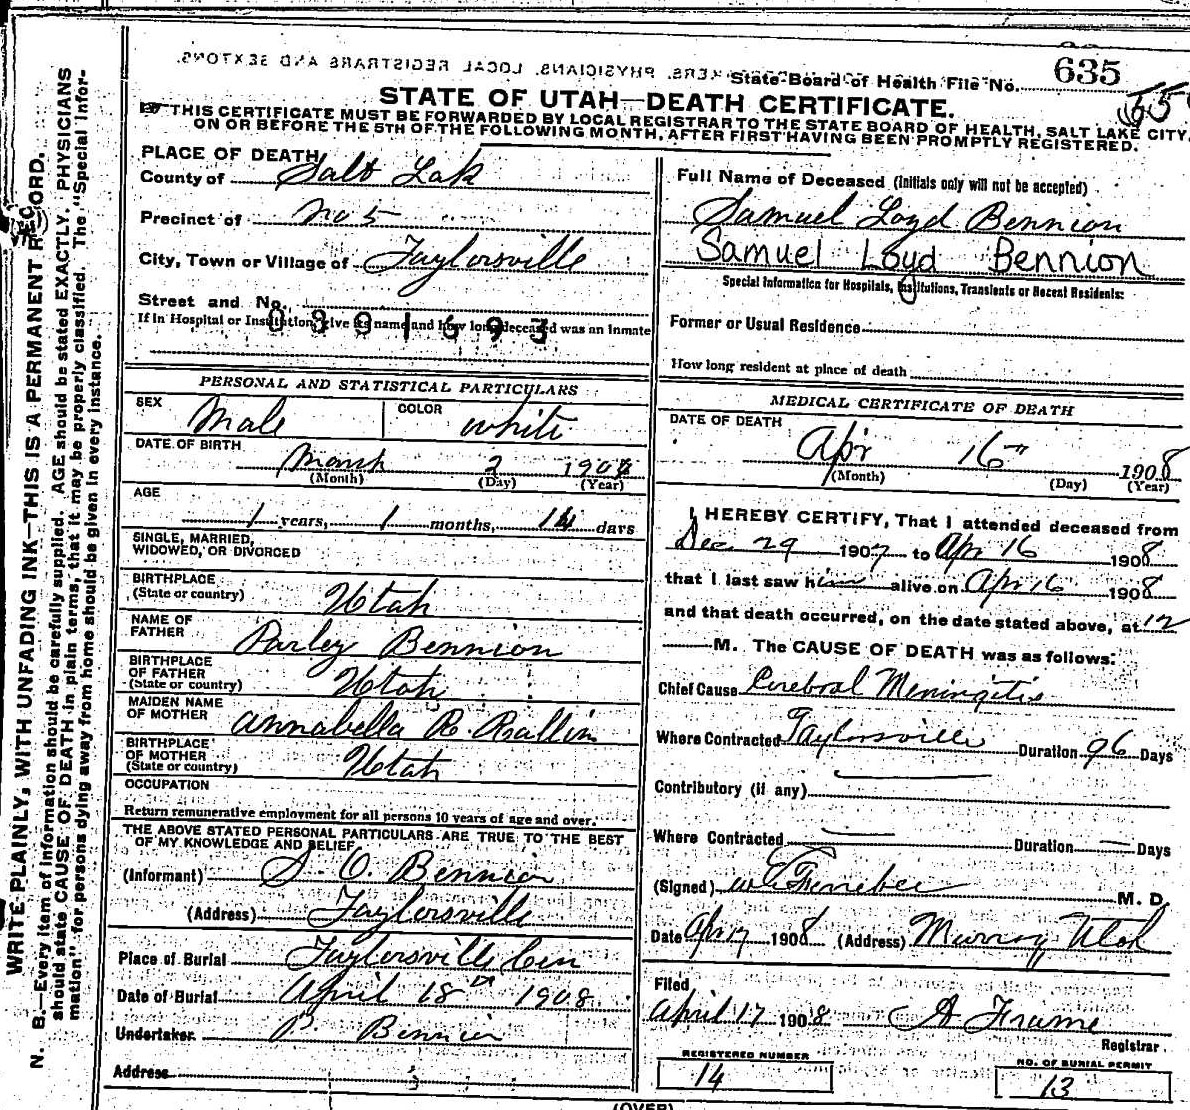 SEXTONS. PHYSICIANS, LOCAL REGISTRARS AND
State Board of Health File No. 635
STATE OF UTAH—DEATH CERTIFICATE.
THIS CERTIFICATE MUST BE FORWARDED BY LOCAL REGISTRAR TO THE STATE BOARD OF HEALTH, SALT LAKE CITY,
ON OR BEFORE THE 5TH OF THE FOLLOWING MONTH, AFTER FIRST HAVING BEEN PROMPTLY REGISTERED.
WRITE PLAINLY, WITH UNFADING INK—THIS IS A PERMANENT RECORD.
N. B.—Every item of information should be carefully supplied. AGE should be stated EXACTLY. PHYSICIANS
should state CAUSE OF DEATH in plain terms, that it may be properly classified. The "Special Infor-
mation" for persons dying away from home should be given in every instance.
PLACE OF DEATH
County of Salt Lak
Precinct of No 5
City, Town or Village of Taylorsville
Street and No.
If in Hospital or Institution, give its name and how long deceased was an inmate
PERSONAL AND STATISTICAL PARTICULARS
SEX Male COLOR white
DATE OF BIRTH
March 2
(Month) (Day) (Year)
AGE
1 years, 1 months, 14 days
SINGLE, MARRIED,
WIDOWED, OR DIVORCED
BIRTHPLACE
(State or country) Utah
NAME OF
FATHER Parley Bennion
BIRTHPLACE
OF FATHER
(State or country) Utah
MAIDEN NAME
OF MOTHER Annabella R.
BIRTHPLACE
OF MOTHER
(State or country) Utah
OCCUPATION
Return remunerative employment for all persons 10 years of age and over.
THE ABOVE STATED PERSONAL PARTICULARS ARE TRUE TO THE BEST
OF MY KNOWLEDGE AND BELIEF.
(Informant) S. O. Bennion
(Address) Taylorsville
Place of Burial Taylorsville Cem
Date of Burial April 18th 1908
Undertaker P Bennion
Address
Full Name of Deceased (Initials only will not be accepted)
Samuel Loyd Bennion
Samuel Loyd Bennion
Special Information for Hospitals, Institutions, Transients or Recent Residents:
Former or Usual Residence
How long resident at place of death
MEDICAL CERTIFICATE OF DEATH
DATE OF DEATH
Apr 16th 1908
(Month) (Day) (Year)
I HEREBY CERTIFY, That I attended deceased from
Dec 29 1907 to Apr 16 1908
that I last saw him alive on Apr 16 1908
and that death occurred, on the date stated above, at 12
M. The CAUSE OF DEATH was as follows:
Chief Cause Cerebral Meningitis
Where Contracted Taylorsville Duration 96 Days
Contributory (if any)
Where Contracted Duration Days
(Signed) M. D.
Date Apr 17 1908 (Address) Murray Utah
Filed,
April 17 1908 A Frame
Registrar
REGISTERED NUMBER
14
NO. OF BURIAL PERMIT
13
(OVER)